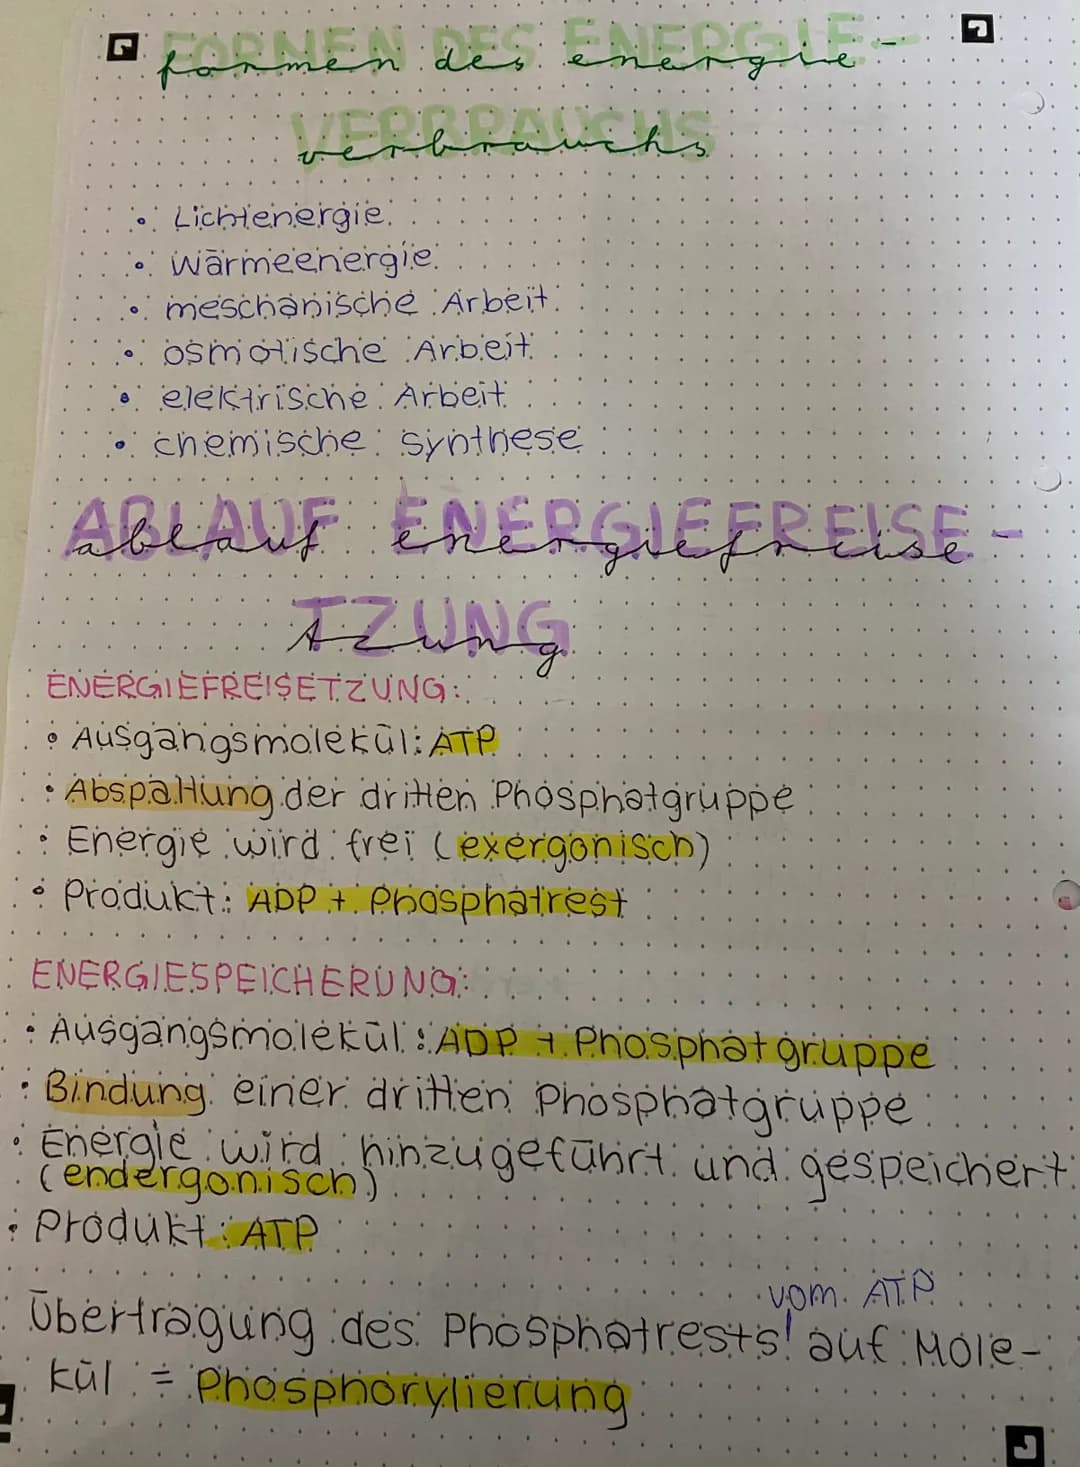 FORMEN DES ENERGIE-
formen des energie-
VERBRAUCHS
verbrauchs
• Lichtenergie
• Wärmeenergie
• meschanische Arbeit
• osmotische Arbeit
• elektrische Arbeit
• chemische synthese
ABLAUF ENERGIEFREISE-
ablauf energiefreise-
TZUNG
tzung
ENERGIEFREISETZUNG:
• Ausgangsmolekül: ATP
• Abspaltung der dritten Phosphatgruppe
• Energie wird frei (exergonisch)
• Produkt: ADP + Phosphatrest
ENERGIESPEICHERUNG:
• Ausgangsmolekül: ADP + Phosphatgruppe
• Bindung einer dritten Phosphatgruppe
• Energie wird hinzugeführt und gespeichert
(endergonisch)
• Produkt: ATP
vom ATP
Übertragung des Phosphatrests auf Mole-
kül = Phosphorylierung